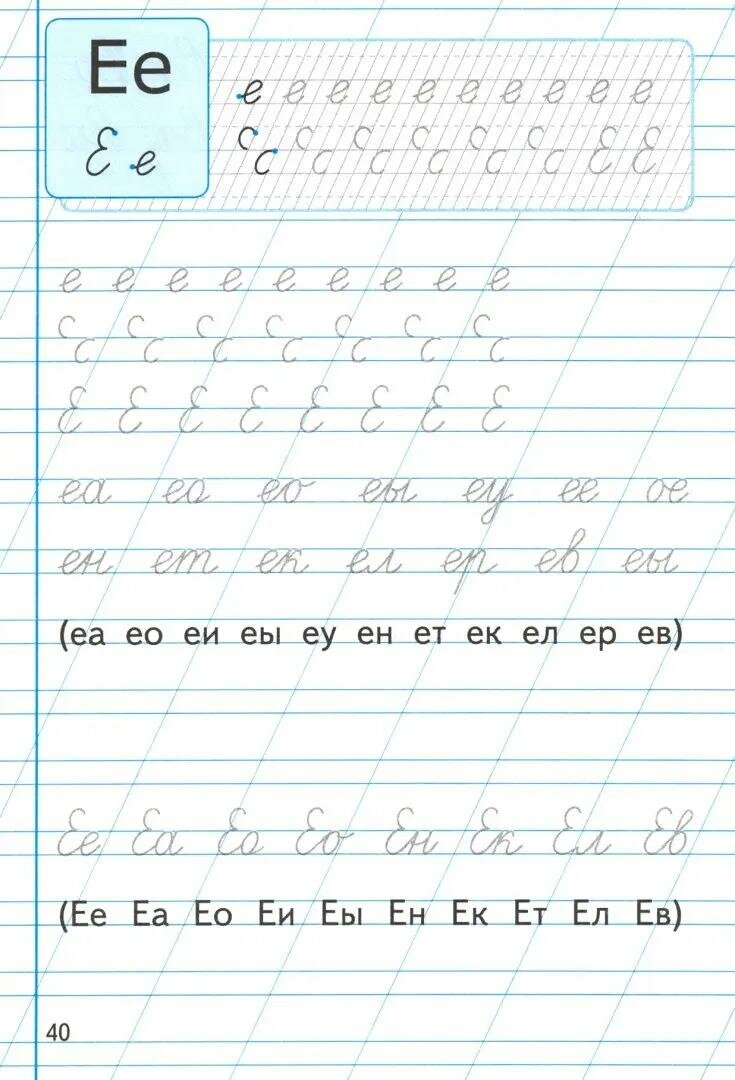 Ее
Ее
е е е е е е е е е е
Е Е
е е е е е е е е е
Е Е Е Е Е Е Е Е
еа ео ео еы еу ее ое
ен ет ек ел ер ев еы
(еа ео еи еы еу ен ет ек ел ер ев)
Ее Еа Ео Ео Ен Ек Ел Ев
(Ее Еа Ео Еи Еы Ен Ек Ет Ел Ев)
40